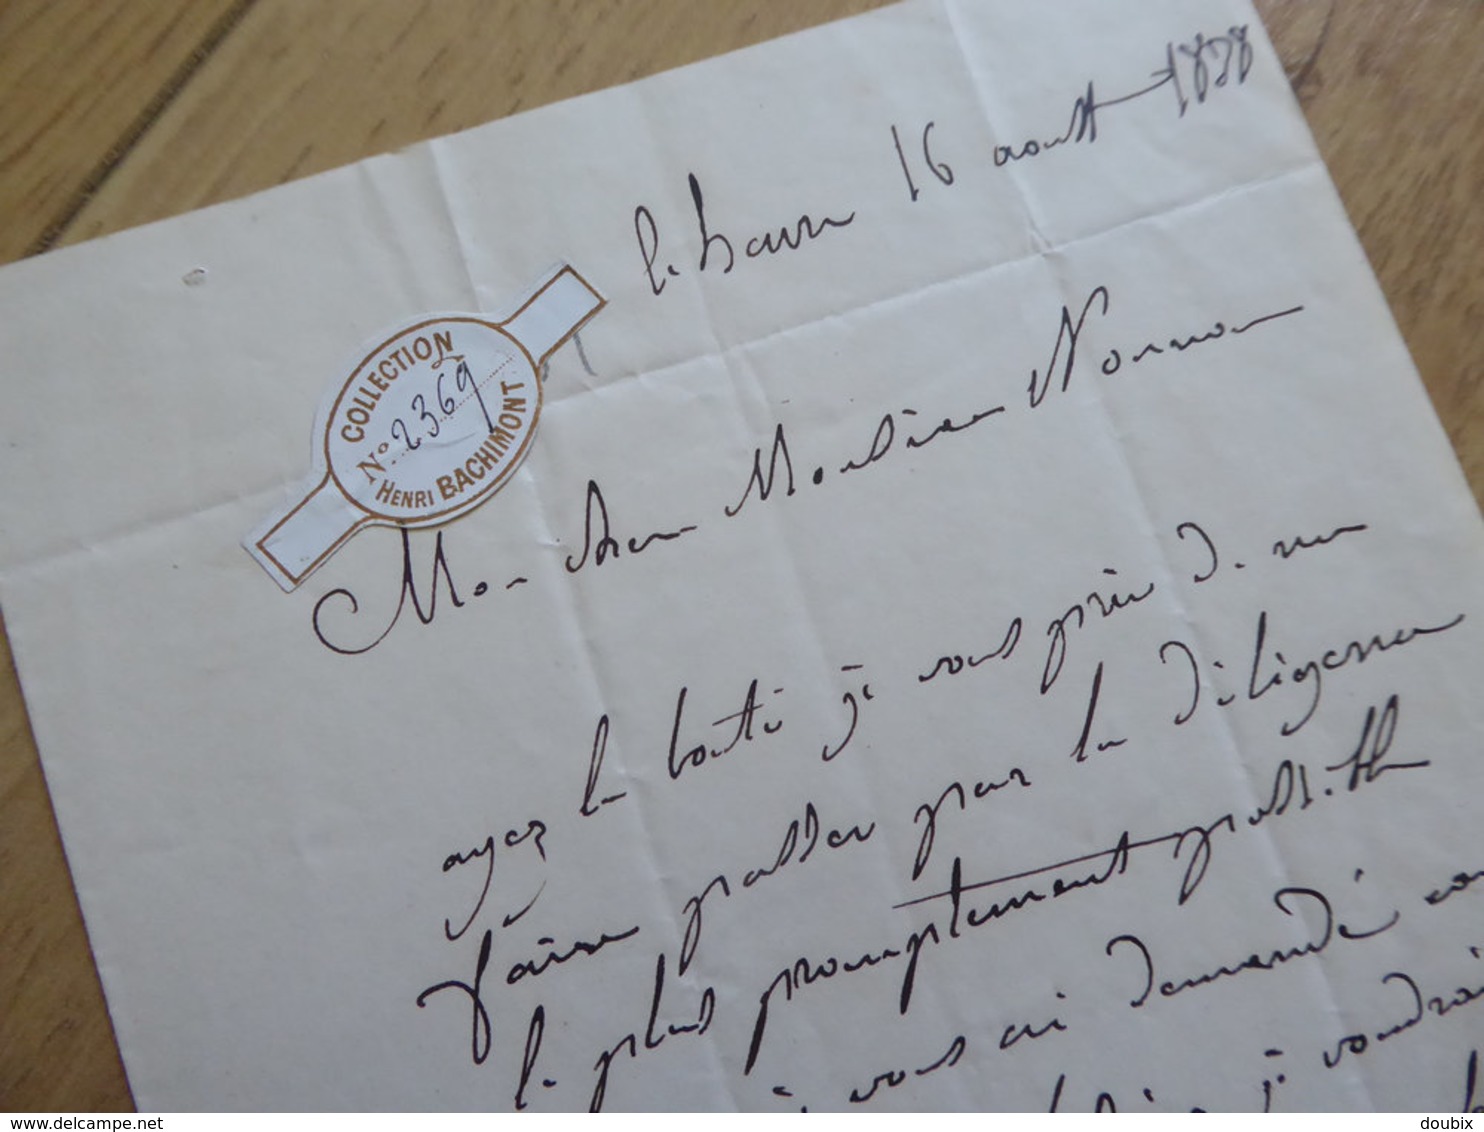 le havre 16 aoust 1838
COLLECTION
No. 2369
HENRI BACHIMONT
Mon cher Monsieur Normon
ayez la bonté je vous prie de me
faire passer par la diligence
le plus promptement possible
vous ai demandé
je voudrai
delcampe.net
doubix